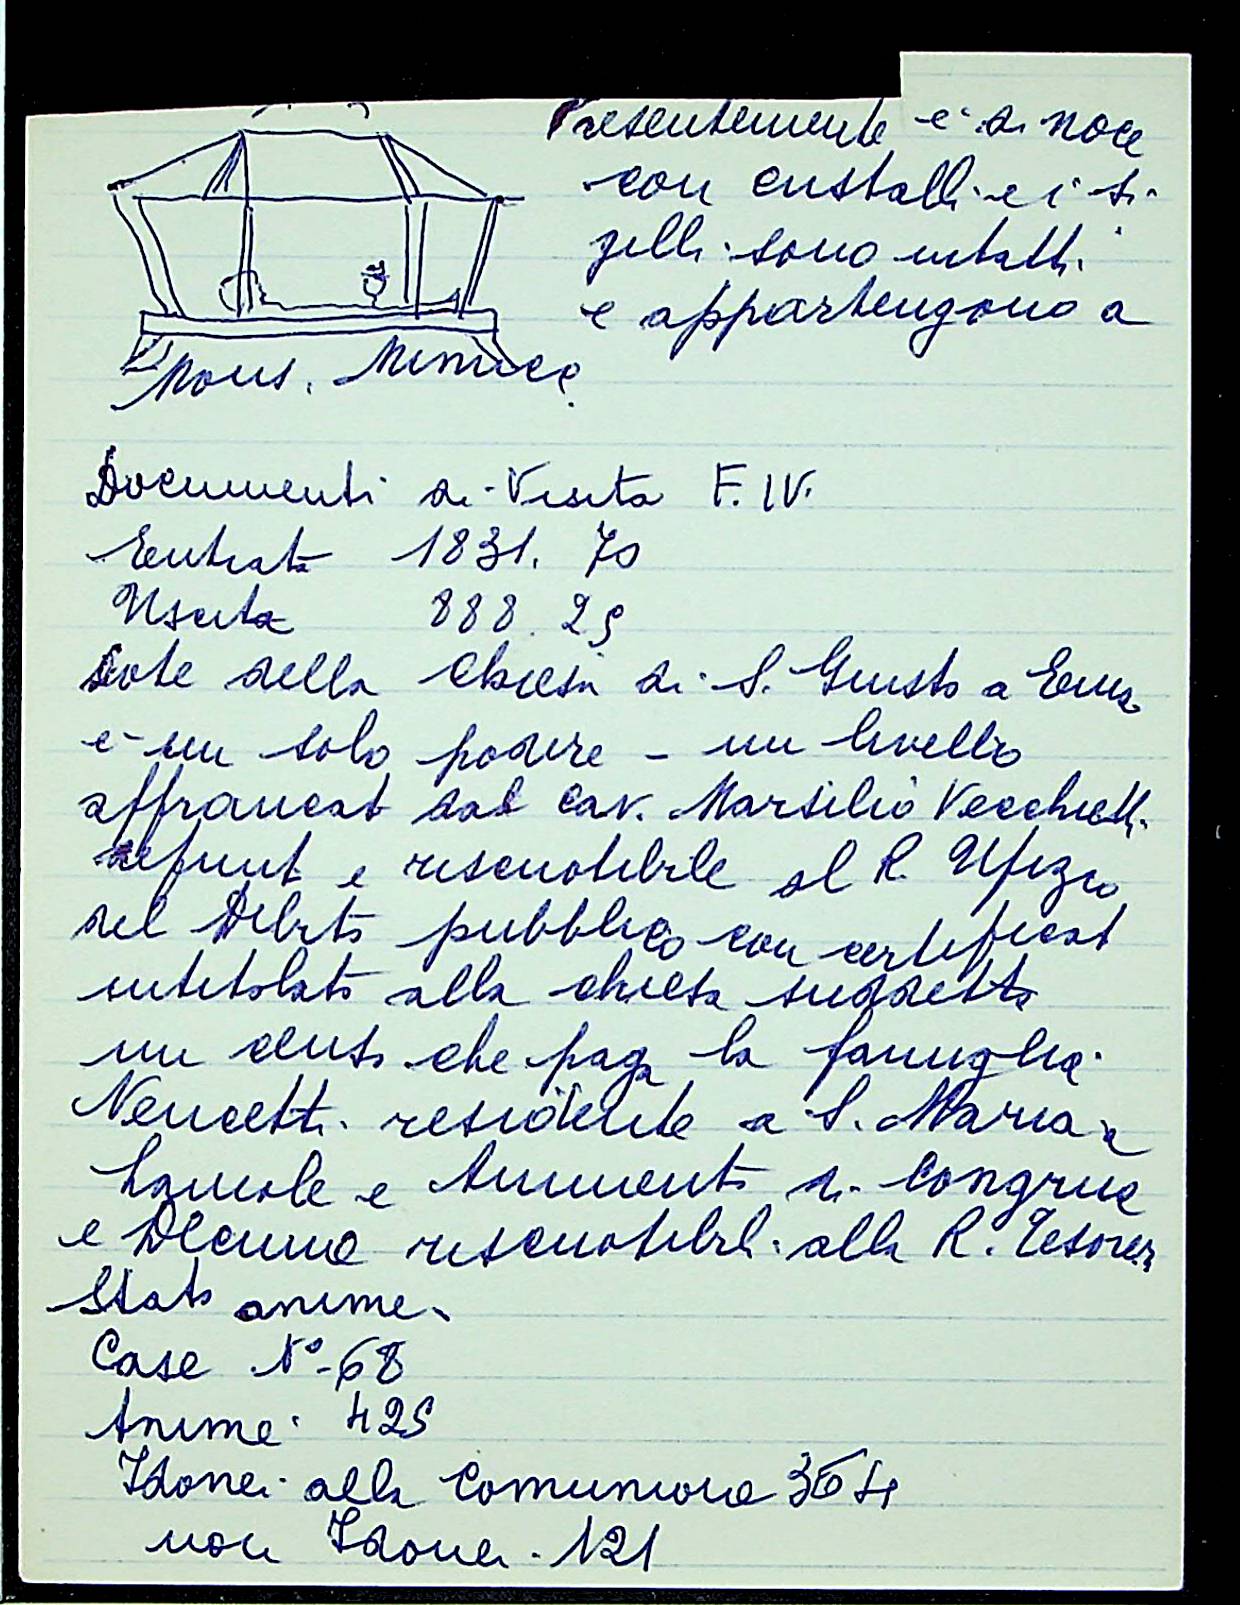 Presentemente è di noce
con cristalli e i si-
gilli sono intatti
e appartengono a
Mons. Minucci
Documenti di Visita F. IV.
Entrata 1831. 70
Uscita 888. 25
Dote della Chiesa di S. Giusto a Ema
è un solo podere - un livello
affrancato dal Cav. Marsilio Vecchietti
defunto e riscuotibile al R. Ufizio
del Debito pubblico con certificato
intitolato alla chiesa suddetta
un censo che paga la famiglia
Nencetti residente a S. Maria a
e Aumento di Congrua
e Decime riscuotibili alla R. Tesorer.
Stato anime.
Case N° 68
Anime 425
Idonei alla Comunione 304
non Idonei. 121